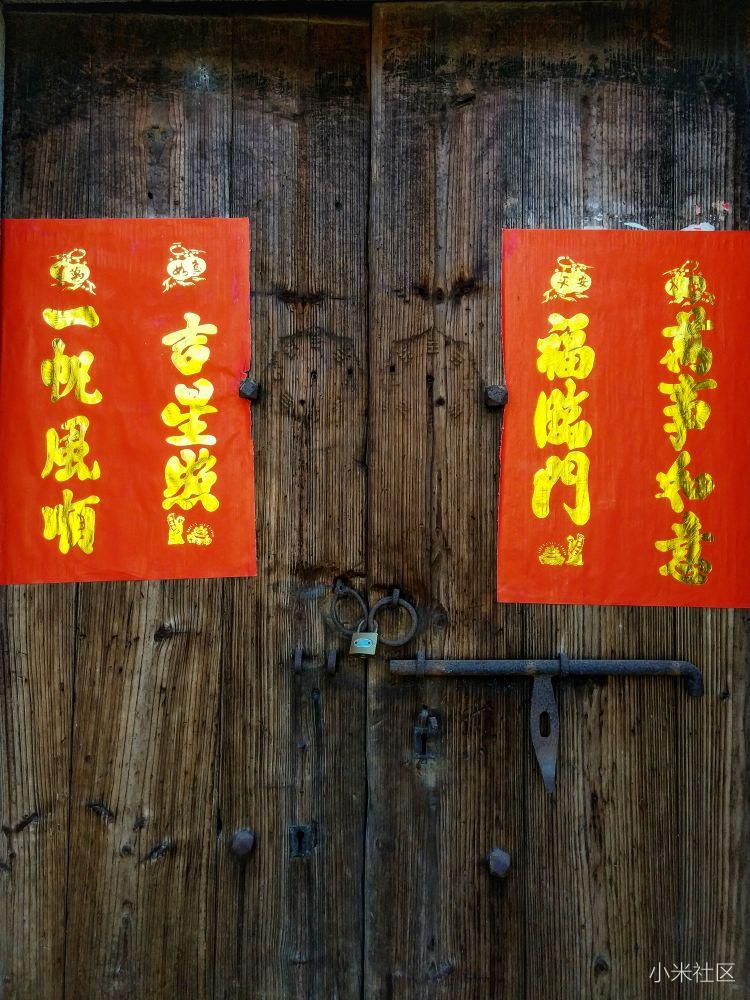 萬事如意
平安
福臨門
如意
吉星照
一帆風順
小米社区